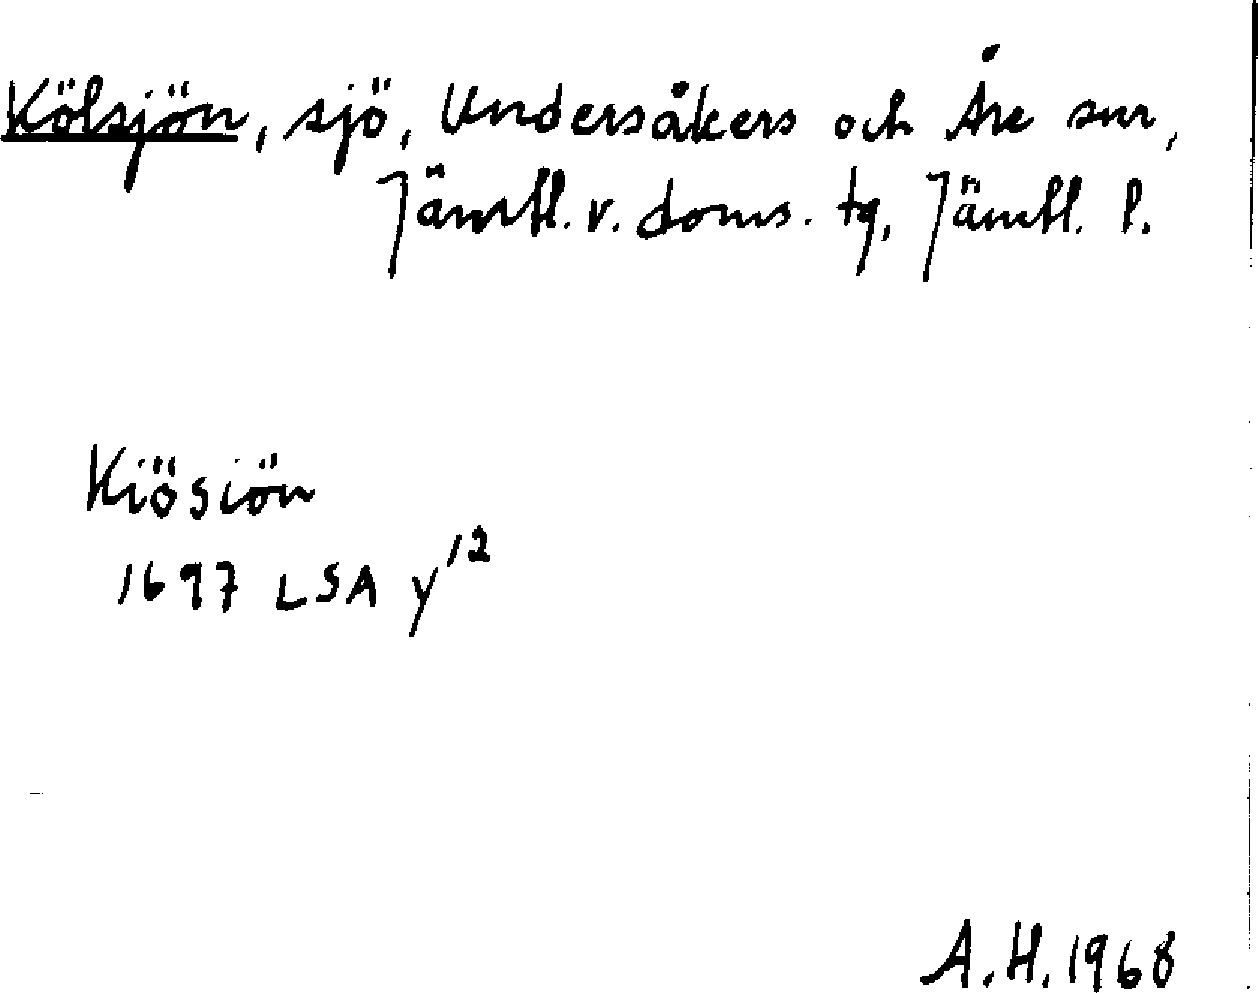 Kölsjön, sjö, Undersåkers och Åre snr,
Jämtl. v. doms. tg, Jämtl. l.
Kiösiön
1697 LSA y12
A.H. 1968